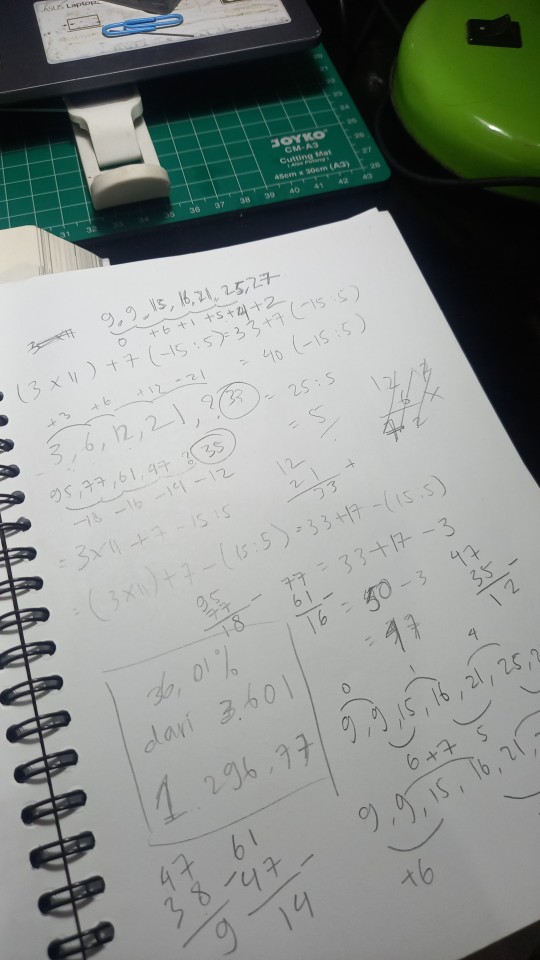 ASUS Laptop
JOYKO
CM-A3
Cutting Mat
(Alas Potong)
45cm x 30cm (A3)
31 32 33 34 35 36 37 38 39 40 41 42 43
9, 9, 15, 16, 21, 25, 27
0 +6 +1 +5 +4 +2
(3 x 11) + 7 (-15 : 5) = 33 + 7 (-15 : 5)
= 40 (-15 : 5)
+3 +6 +12 -21
3, 6, 12, 21, ? 33 = 25 : 5
= 5
95, 77, 61, 47 ? 35
-18 -16 -14 -12
12
21 +
33
= 3 x 11 + 7 - 15 : 5
= (3 x 11) + 7 - (15 : 5) = 33 + 17 - (15 : 5)
= 33 + 17 - 3
= 50 - 3
= 47
95
77 -
18
77
61 -
16
47
35 -
12
36,01%
dari 3.601
1.296,77
0 1 4
9, 9, 15, 16, 21, 25,
6 + 7 5
9, 9, 15, 16, 21,
+6
47
38 -
9
61
47 -
14